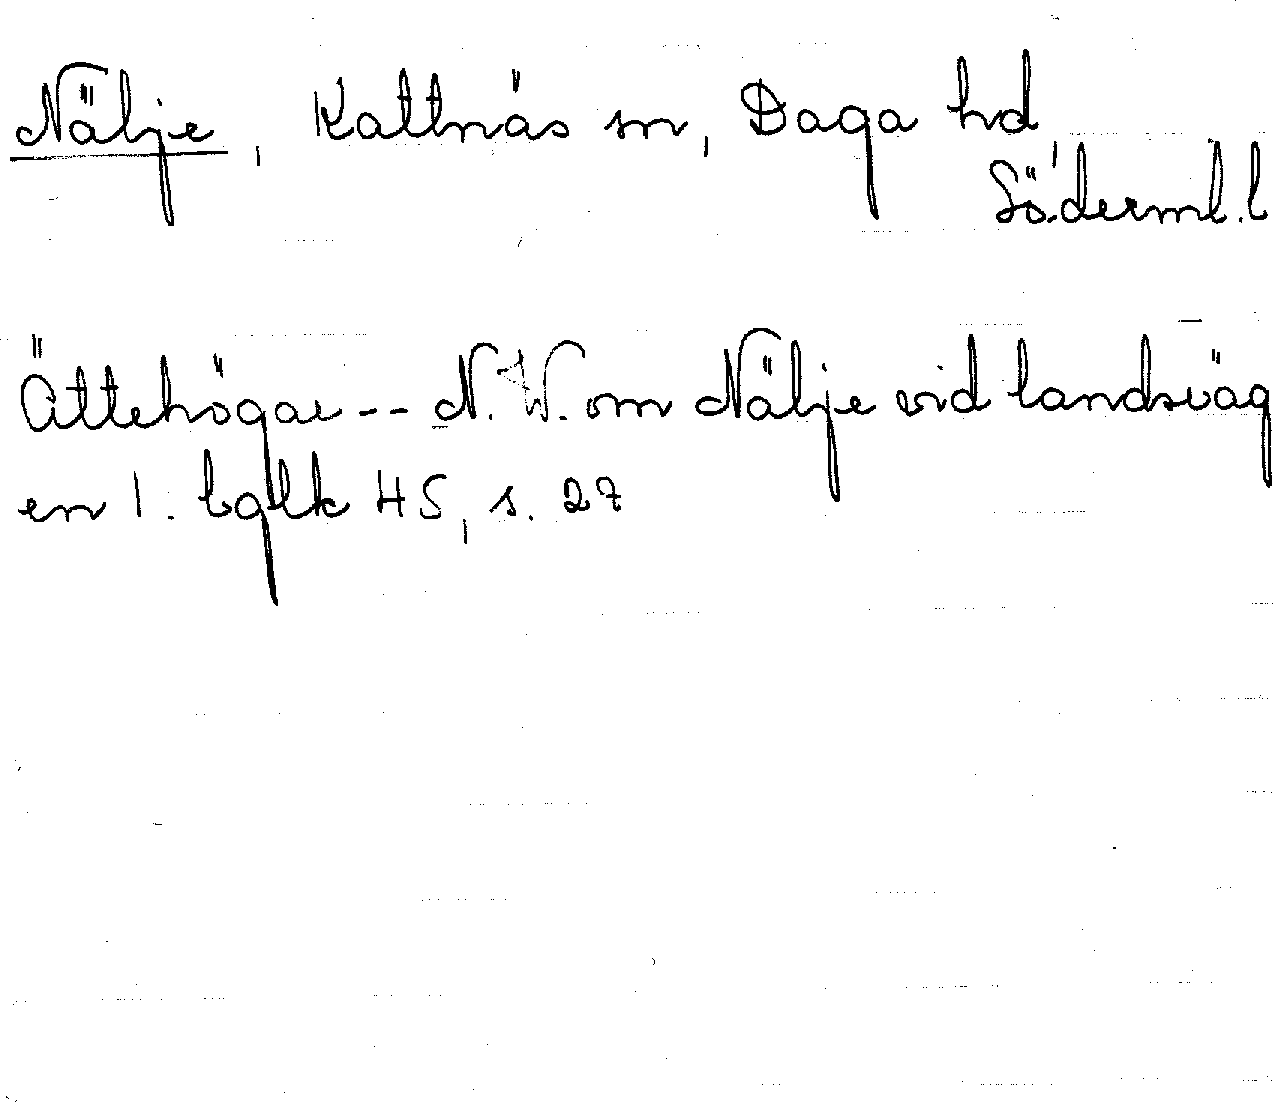 Nälje, Kattnäs sn, Daga hd,
Söderml. l
Ättehögar -- N. W. om Nälje vid landsväg
en 1. bglk HS, s. 27